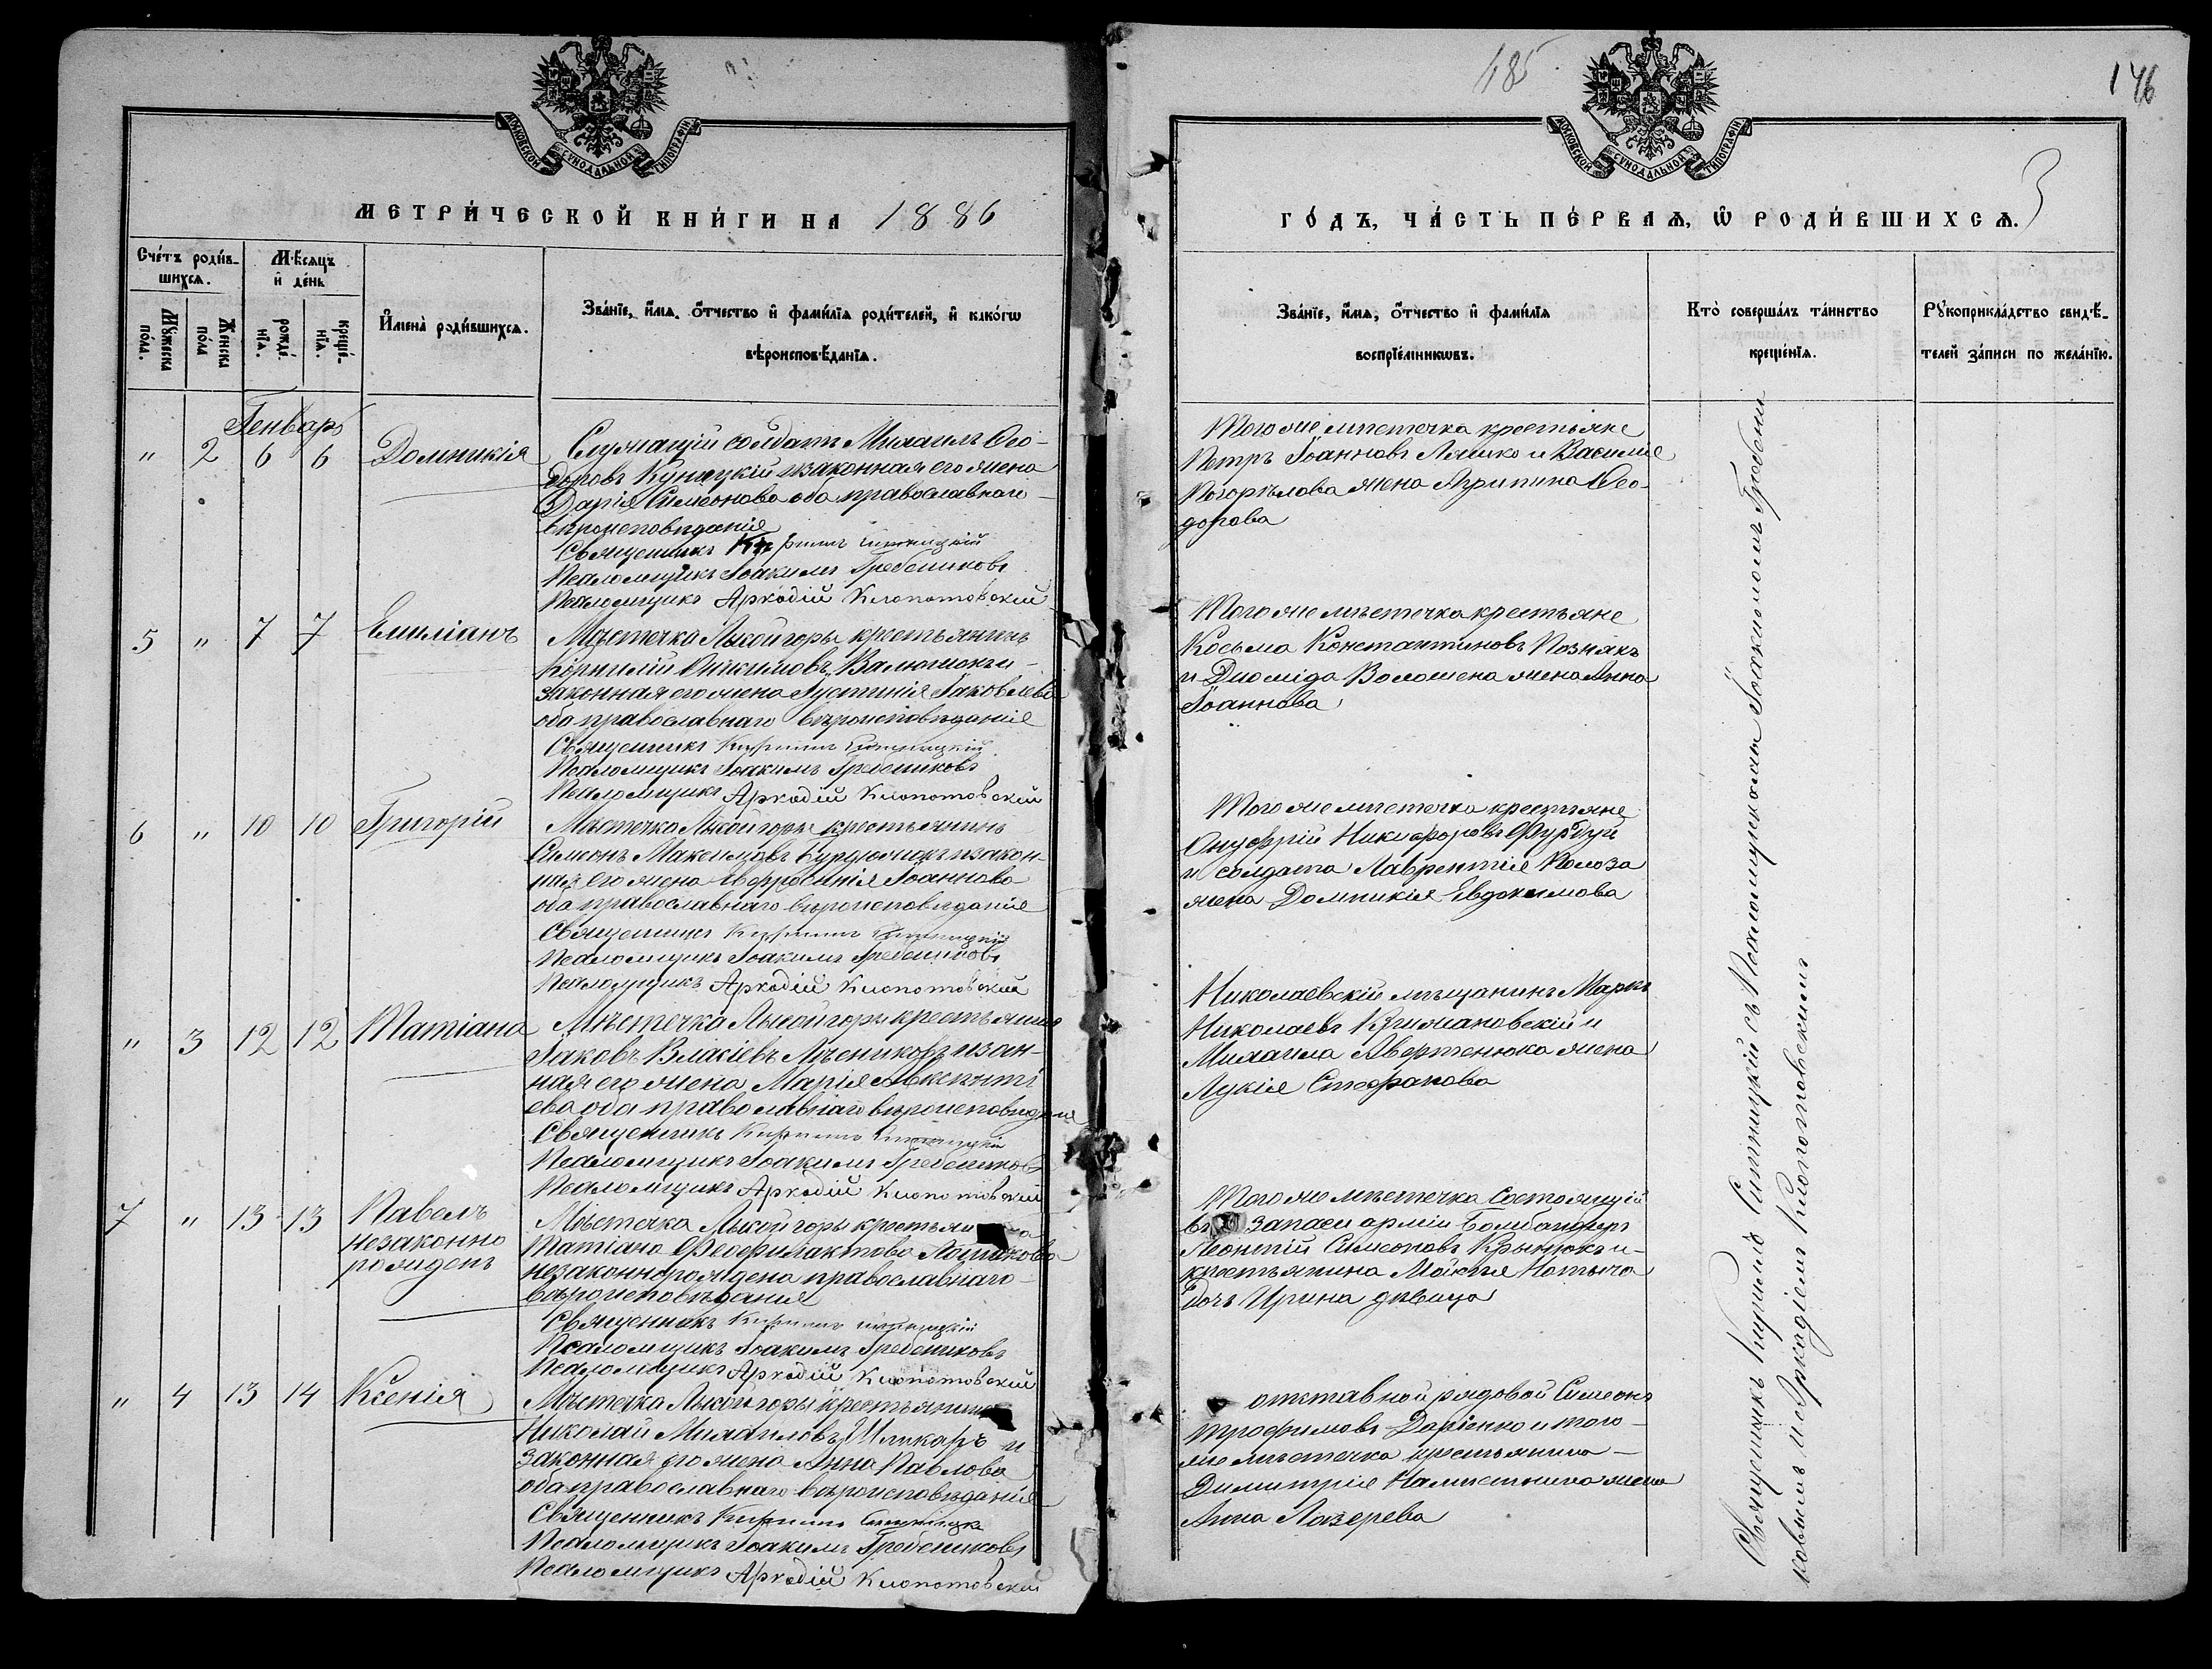 МОСКОВСКОЙ СѴНОДАЛЬНОЙ ТИПОГРАФІИ
МЕТРИ́ЧЕСКОЙ КНИ́ГИ НА 1886
Сче́тъ роди́в-
шихсѧ.
Мѣ́сѧцъ
и҆ де́нь
Мꙋ́жеска
по́ла.
Же́нска
по́ла
рожде́-
нїѧ.
креще́-
нїѧ.
И҆мена̀ роди́вшихсѧ.
Зва́нїе, и҆́мѧ, ѻ҆́тчество и҆ фами́лїѧ роди́телей, и҆ како́гѡ
вѣроисповѣ́данїѧ.
Генварь
" 2 6 6 Домникія
Служащій солдатъ Михаилъ Ѳео-
доровъ Куницкій и законная его жена
Дарія Симеонова оба православнаго
вѣроисповѣданія
Священникъ Кириллъ Ситницкій
Псаломщикъ Іоакимъ Гребениковъ
Псаломщикъ Аркадій Клопотовскій
5 " 7 7 Емиліанъ
Мѣстечка Лысой горы крестьянинъ
Корнилій Онисимовъ и
законная его жена Іустинія Іаковлева
оба православнаго вѣроисповѣданія
Священникъ Кириллъ Ситницкій
Псаломщикъ Іоакимъ Гребениковъ
Псаломщикъ Аркадій Клопотовскій
6 " 10 10 Григорій
Мѣстечка Лысой горы крестьянинъ
Симеонъ Максимовъ Бурдюжокъ и закон-
ная его жена Евфросинія Іоаннова
оба православнаго вѣроисповѣданія
Священникъ Кириллъ Ситницкій
Псаломщикъ Іоакимъ Гребениковъ
Псаломщикъ Аркадій Клопотовскій
" 3 12 12 Татіана
Мѣстечка Лысой горы крестьянинъ
Іаковъ Власіевъ и зан-
ная его жена Марія Авксенті
ева оба православнаго вѣроисповѣданія
Священникъ Кириллъ Ситницкій
Псаломщикъ Іоакимъ Гребениковъ
Псаломщикъ Аркадій Клопотовскій
7 " 13 13 Павелъ
незаконно
рожденъ
Мѣстечка Лысой горы
Татіана Ѳеофилактова
незаконнорождена православнаго
вѣроисповѣданія
Священникъ Кириллъ Ситницкій
Псаломщикъ Іоакимъ Гребениковъ
Псаломщикъ Аркадій Клопотовскій
" 4 13 14 Ксенія
Мѣстечка Лысой горы крестьянинъ
Николай Михаиловъ Шинкарь и
законная его жена Анна Павлова
оба православнаго вѣроисповѣданія
Священникъ Кириллъ Ситницкій
Псаломщикъ Іоакимъ Гребениковъ
Псаломщикъ Аркадій Клопотовскій
185
146
3
МОСКОВСКОЙ СѴНОДАЛЬНОЙ ТИПОГРАФІИ
ГО́ДЪ, ЧА́СТЬ ПЕ́РВАѦ, Ѡ҆ РОДИ́ВШИХСѦ.
Зва́нїе, и҆́мѧ, ѻ҆́тчество и҆ фами́лїѧ
воспрїе́мникѡвъ.
Кто̀ соверша́лъ та́инство
креще́нїѧ.
Рꙋкоприкла́дство свидѣ́-
телей за́писи по жела́нїю.
Того же мѣстечка крестьяне
Петръ Іоанновъ Ляшко и Василіе
Погорѣлова жена Агрипина Ѳео-
дорова
Того же мѣстечка крестьяне
Косьма Константиновъ Познякъ
и Діомида Волошена жена Анна
Іоаннова
Того же мѣстечка крестьяне
Онуфрій Никифоровъ Фурдуй
и солдата Лаврентія Колоза
жена Домникія Евдокимова
Николаевскій мѣщанинъ Маркъ
Николаевъ Крижановскій и
Михаила Аверменюка жена
Лукія Стефанова
Того же мѣстечка состоящій
въ запаси арміи Бомбандиръ
Леонтій Симеоновъ Крынюкъ и
крестьянина Мойсея
дочь Ирина дѣвица
отставной рядовой Симеонъ
Трофимовъ Даріенко и того-
же мѣстечка крестьянина
Димитрія жена
Анна Лазерева
Священникъ Кириллъ Ситницкій съ Псаломщиками Іоакимомъ Гребени
ковымъ и Аркадіемъ Клопотовскимъ